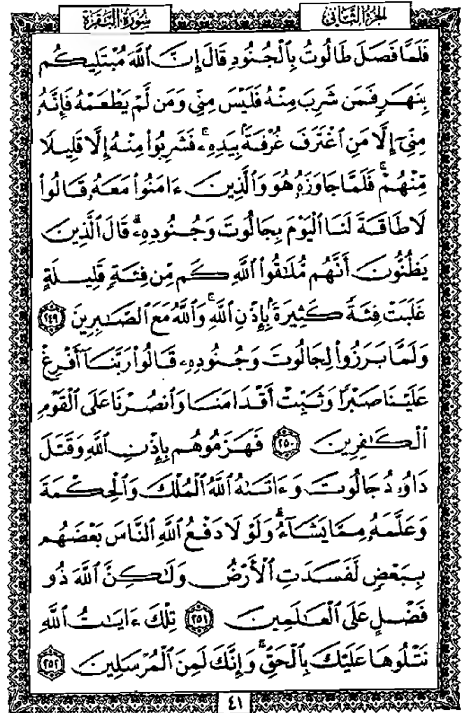 الجزء الثاني
سورة البقرة
فَلَمَّا فَصَلَ طَالُوتُ بِٱلْجُنُودِ قَالَ إِنَّ ٱللَّهَ مُبْتَلِيكُم
بِنَهَرٍ فَمَن شَرِبَ مِنْهُ فَلَيْسَ مِنِّي وَمَن لَّمْ يَطْعَمْهُ فَإِنَّهُۥ
مِنِّيٓ إِلَّا مَنِ ٱغْتَرَفَ غُرْفَةًۢ بِيَدِهِۦۚ فَشَرِبُوا۟ مِنْهُ إِلَّا قَلِيلًا
مِّنْهُمْۚ فَلَمَّا جَاوَزَهُۥ هُوَ وَٱلَّذِينَ ءَامَنُوا۟ مَعَهُۥ قَالُوا۟
لَا طَاقَةَ لَنَا ٱلْيَوْمَ بِجَالُوتَ وَجُنُودِهِۦۚ قَالَ ٱلَّذِينَ
يَظُنُّونَ أَنَّهُم مُّلَٰقُوا۟ ٱللَّهِ كَم مِّن فِئَةٍ قَلِيلَةٍ
غَلَبَتْ فِئَةً كَثِيرَةًۢ بِإِذْنِ ٱللَّهِۗ وَٱللَّهُ مَعَ ٱلصَّٰبِرِينَ ٢٤٩
وَلَمَّا بَرَزُوا۟ لِجَالُوتَ وَجُنُودِهِۦ قَالُوا۟ رَبَّنَآ أَفْرِغْ
عَلَيْنَا صَبْرًا وَثَبِّتْ أَقْدَامَنَا وَٱنصُرْنَا عَلَى ٱلْقَوْمِ
ٱلْكَٰفِرِينَ ٢٥٠ فَهَزَمُوهُم بِإِذْنِ ٱللَّهِ وَقَتَلَ
دَاوُۥدُ جَالُوتَ وَءَاتَىٰهُ ٱللَّهُ ٱلْمُلْكَ وَٱلْحِكْمَةَ
وَعَلَّمَهُۥ مِمَّا يَشَآءُۗ وَلَوْلَا دَفْعُ ٱللَّهِ ٱلنَّاسَ بَعْضَهُم
بِبَعْضٍ لَّفَسَدَتِ ٱلْأَرْضُ وَلَٰكِنَّ ٱللَّهَ ذُو
فَضْلٍ عَلَى ٱلْعَٰلَمِينَ ٢٥١ تِلْكَ ءَايَٰتُ ٱللَّهِ
نَتْلُوهَا عَلَيْكَ بِٱلْحَقِّۚ وَإِنَّكَ لَمِنَ ٱلْمُرْسَلِينَ ٢٥٢
٤١